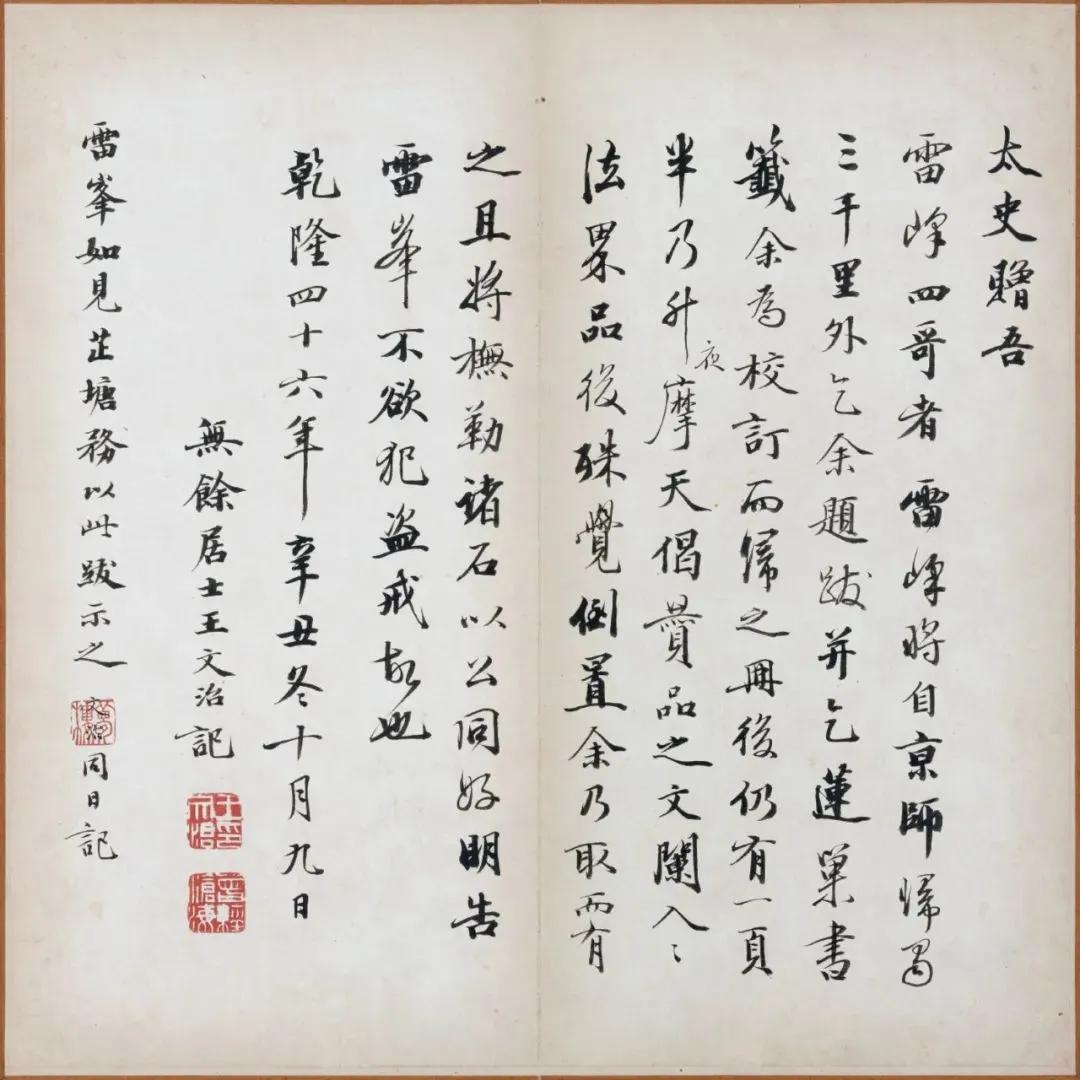 太史贈吾
雷峰四哥者雷峰將自京師歸蜀
三千里外乞余題跋并乞蓮巢書
籤余為校訂而歸之冊後仍有一頁
半乃升夜摩天偈讚品之文闌入〻
法界品後殊覺倒置余乃取而有
之且將橅勒諸石以公同好明告
雷峯不欲犯盜戒故也
乾隆四十六年辛丑冬十月九日
無餘居士王文治記
王印文治
曾經滄海
雷峯如見芷塘務以此跋示之文治同日記
夢樓